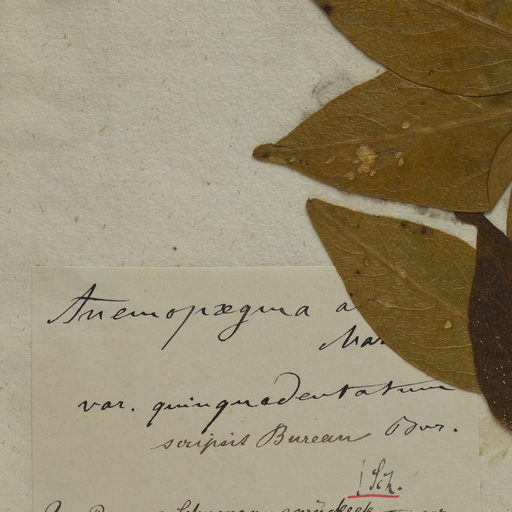 Anemopægma a
Mar
var. quinquedentatum
scripsit Bureau Bur.
! Sch.